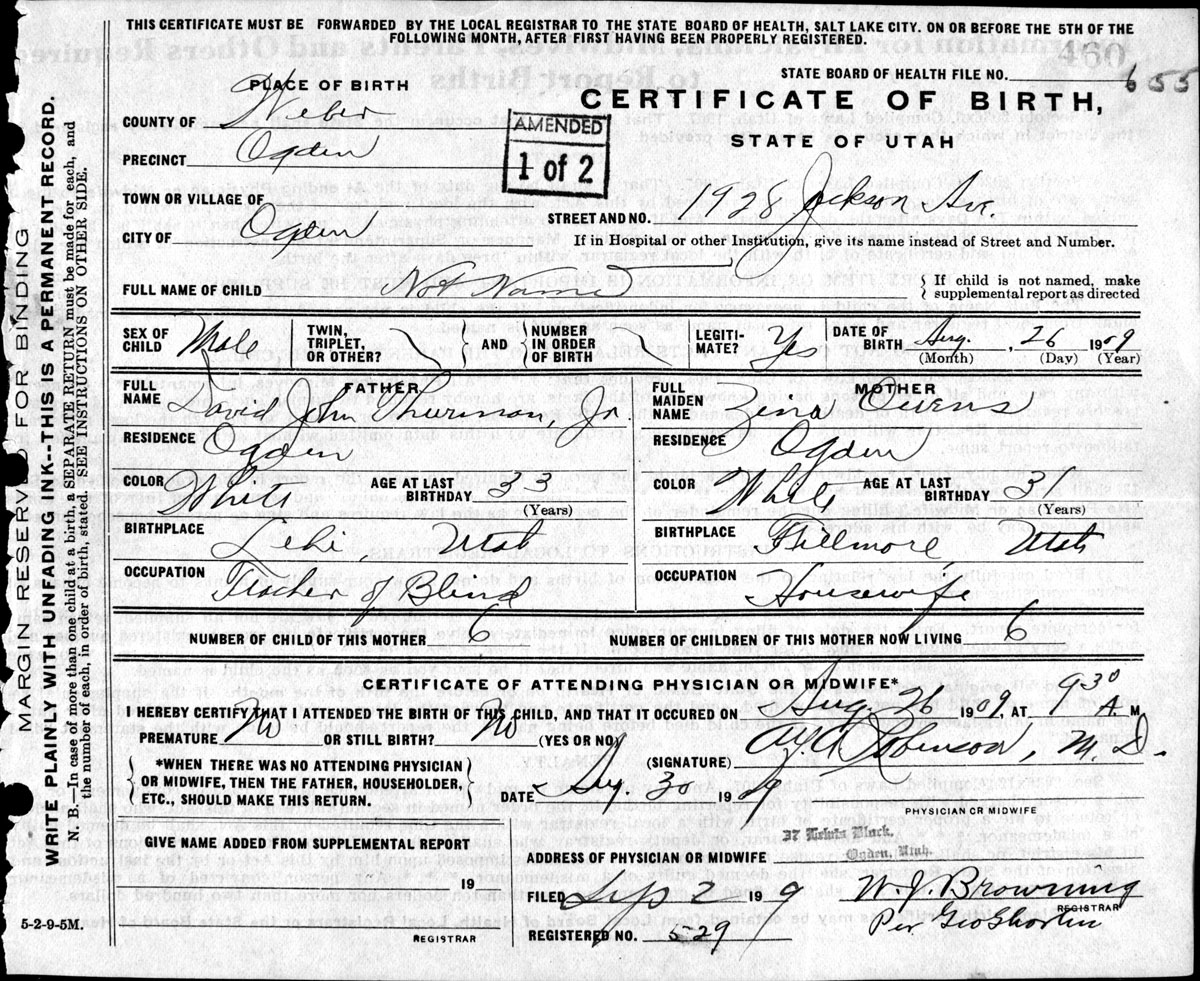 THIS CERTIFICATE MUST BE FORWARDED BY THE LOCAL REGISTRAR TO THE STATE BOARD OF HEALTH, SALT LAKE CITY. ON OR BEFORE THE 5TH OF THE
FOLLOWING MONTH, AFTER FIRST HAVING BEEN PROPERLY REGISTERED.
460
STATE BOARD OF HEALTH FILE NO. 655
PLACE OF BIRTH
CERTIFICATE OF BIRTH,
STATE OF UTAH
AMENDED
1 of 2
COUNTY OF Weber
PRECINCT Ogden
TOWN OR VILLAGE OF
STREET AND NO. 1928 Jackson Ave.
CITY OF Ogden
If in Hospital or other Institution, give its name instead of Street and Number.
FULL NAME OF CHILD Not Named
If child is not named, make
supplemental report as directed
SEX OF CHILD Male
TWIN, TRIPLET, OR OTHER?
AND
NUMBER IN ORDER OF BIRTH
LEGITI-MATE? Yes
DATE OF BIRTH Aug. 26 1909
(Month) (Day) (Year)
FATHER
FULL NAME David John Thurman, Jr.
RESIDENCE Ogden
COLOR White AGE AT LAST BIRTHDAY 33
(Years)
BIRTHPLACE Lehi, Utah
OCCUPATION Teacher of Blind
MOTHER
FULL MAIDEN NAME Zina Owens
RESIDENCE Ogden
COLOR White AGE AT LAST BIRTHDAY 36
(Years)
BIRTHPLACE Fillmore Utah
OCCUPATION Housewife
NUMBER OF CHILD OF THIS MOTHER 6
NUMBER OF CHILDREN OF THIS MOTHER NOW LIVING 6
CERTIFICATE OF ATTENDING PHYSICIAN OR MIDWIFE*
I HEREBY CERTIFY THAT I ATTENDED THE BIRTH OF THIS CHILD, AND THAT IT OCCURED ON Aug. 26 1909, AT 9 30 A. M
PREMATURE No OR STILL BIRTH? No (YES OR NO)
(SIGNATURE) Robinson, M.D.
*WHEN THERE WAS NO ATTENDING PHYSICIAN
OR MIDWIFE, THEN THE FATHER, HOUSEHOLDER,
ETC., SHOULD MAKE THIS RETURN.
DATE Aug 30 1909
PHYSICIAN OR MIDWIFE
GIVE NAME ADDED FROM SUPPLEMENTAL REPORT
19
REGISTRAR
ADDRESS OF PHYSICIAN OR MIDWIFE
Ogden, Utah.
FILED Sep 2 1909
W. J. Browning
REGISTRAR
Per Geo Shorten
REGISTERED NO. 529
5-2-9-5M.
MARGIN RESERVED FOR BINDING
WRITE PLAINLY WITH UNFADING INK--THIS IS A PERMANENT RECORD.
N. B.—In case of more than one child at a birth, SEPARATE RETURN must be made for each, and
the number of each, in order of birth, stated. (SEE INSTRUCTIONS ON OTHER SIDE.